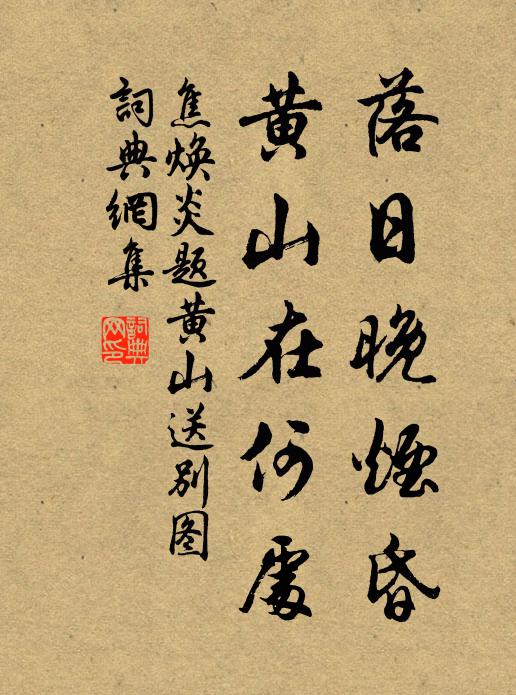 落日晚煙昏
黄山在何處
焦焕炎题黄山送别图
詞典網集
詞典
网印